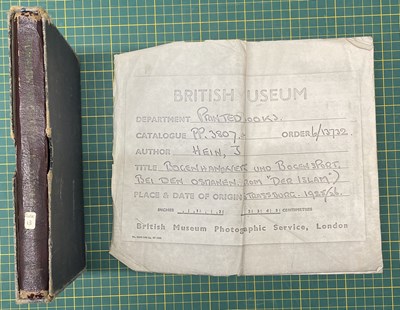 BRITISH MUSEUM
DEPARTMENT PRINTED BOOKS
CATALOGUE PP.3807. ORDER 6/12722
AUTHOR HEIN, J
TITLE BOGENHANDWERK UND BOGENSPORT
BEI DEN OSMANEN (FROM "DER ISLAM")
PLACE & DATE OF ORIGIN STRASSBURG. 1925/26
INCHES CENTIMETRES
British Museum Photographic Service, London